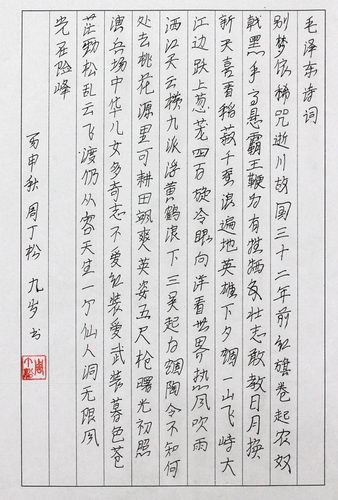 毛泽东诗词
别梦依稀咒逝川故国三十二年前红旗卷起农奴
戟黑手高悬霸主鞭为有牺牲多壮志敢教日月换
新天喜看稻菽千重浪遍地英雄下夕烟一山飞峙大
江边跃上葱茏四百旋冷眼向洋看世界热风吹雨
洒江天云横九派浮黄鹤浪下三吴起白烟陶令不知何
处去桃花源里可耕田飒爽英姿五尺枪曙光初照
演兵场中华儿女多奇志不爱红装爱武装暮色苍
茫劲松乱云飞渡仍从容天生一个仙人洞无限风
光在险峰
丙申秋周丁松九岁书